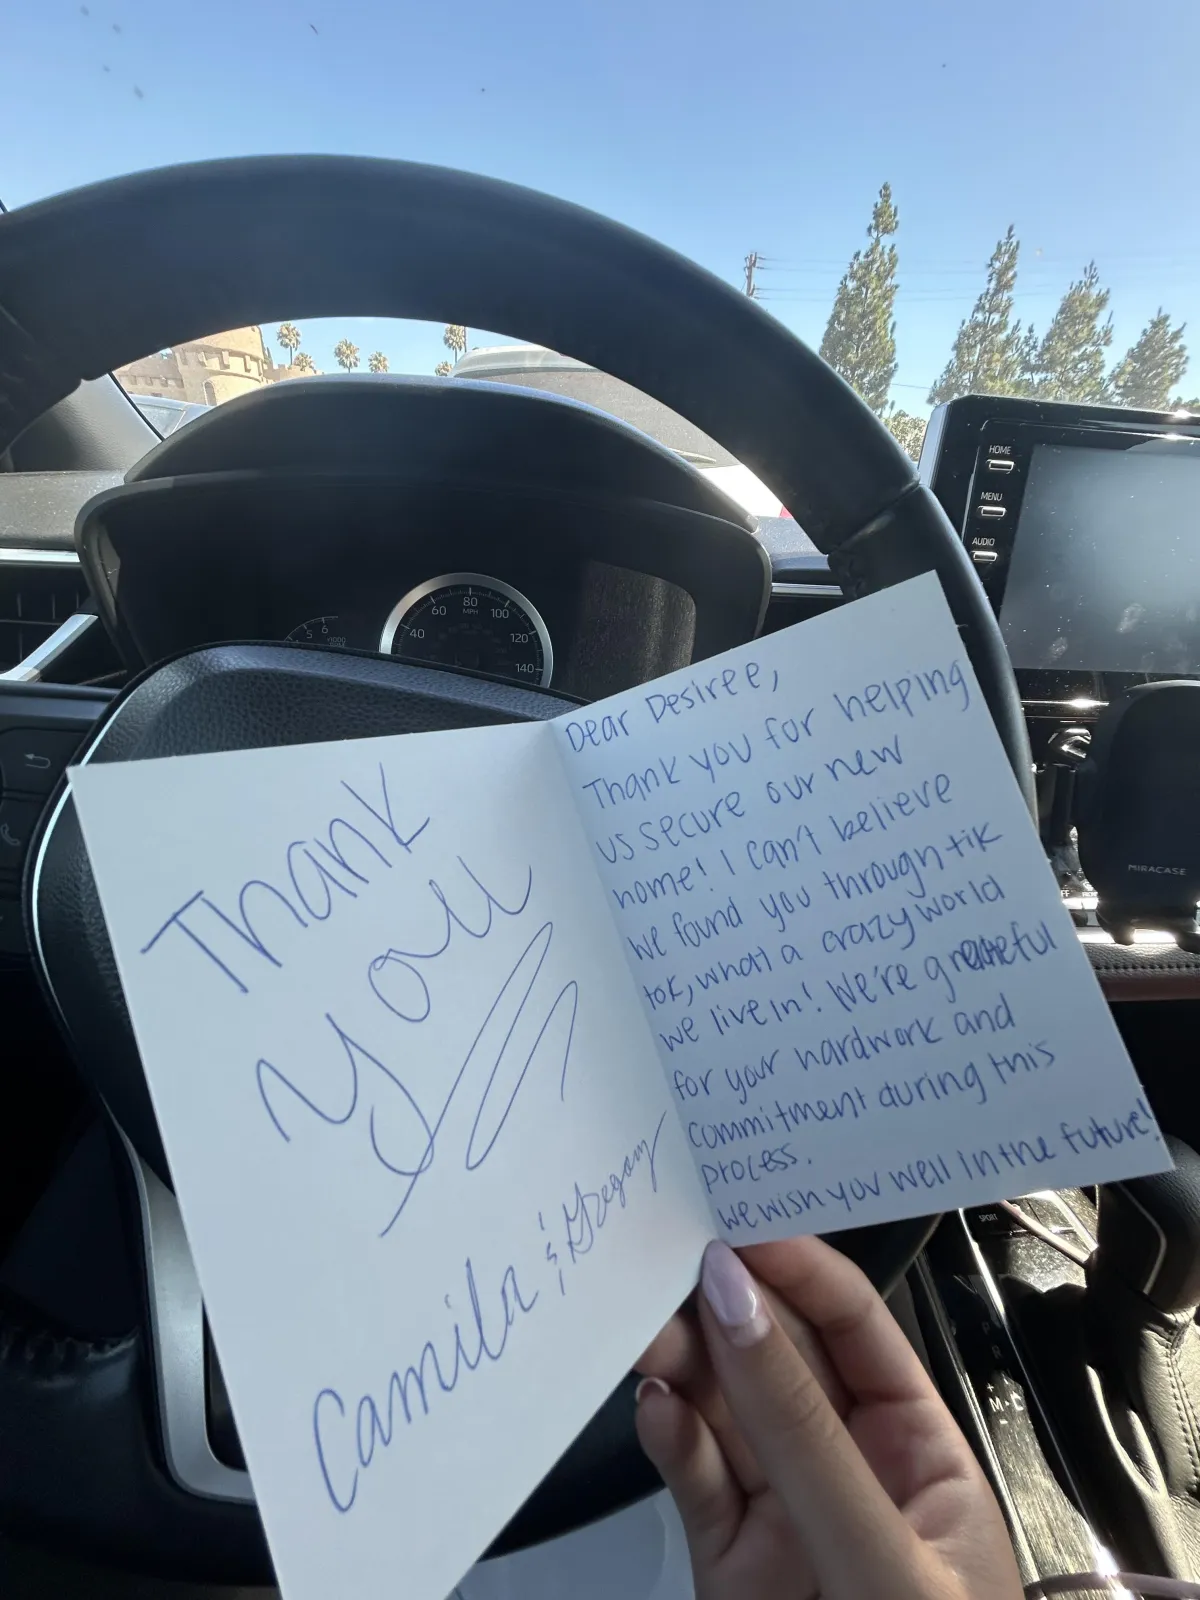 HOME
MENU
AUDIO
5 6
x1000
40
60
80
MPH
100
120
140
MIRACASE
Thank
you
Camila & Gregory
Dear Desiree,
Thank you for helping
us secure our new
home! I can't believe
we found you through tik
tok, what a crazy world
we live in! We're grateful
for your hardwork and
commitment during this
process.
we wish you well in the future!
SPORT
P
R
M